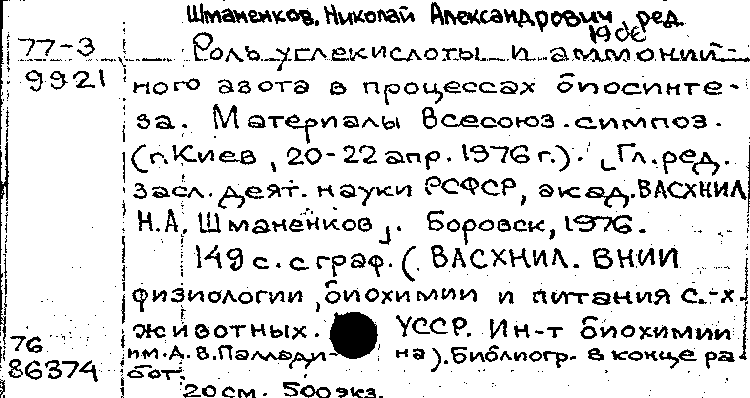 Шманенков, Николай Александрович, ред.
1906
77-3 Роль углекислоты и аммоний-
9921 ного азота в процессах биосинте-
за. Материалы Всесоюз. симпоз.
(г. Киев, 20-22 апр. 1976 г.). [Гл. ред.
засл. деят. науки РСФСР, акад. ВАСХНИЛ
Н.А. Шманенков]. Боровск, 1976.
149 с. с граф. (ВАСХНИЛ. ВНИИ
физиологии, биохимии и питания с.-х.
животных. УССР. Ин-т биохимии
76 им. А. В. Паллади- на). Библиогр. в конце ра-
86374 бот.
20 см. 500 экз.